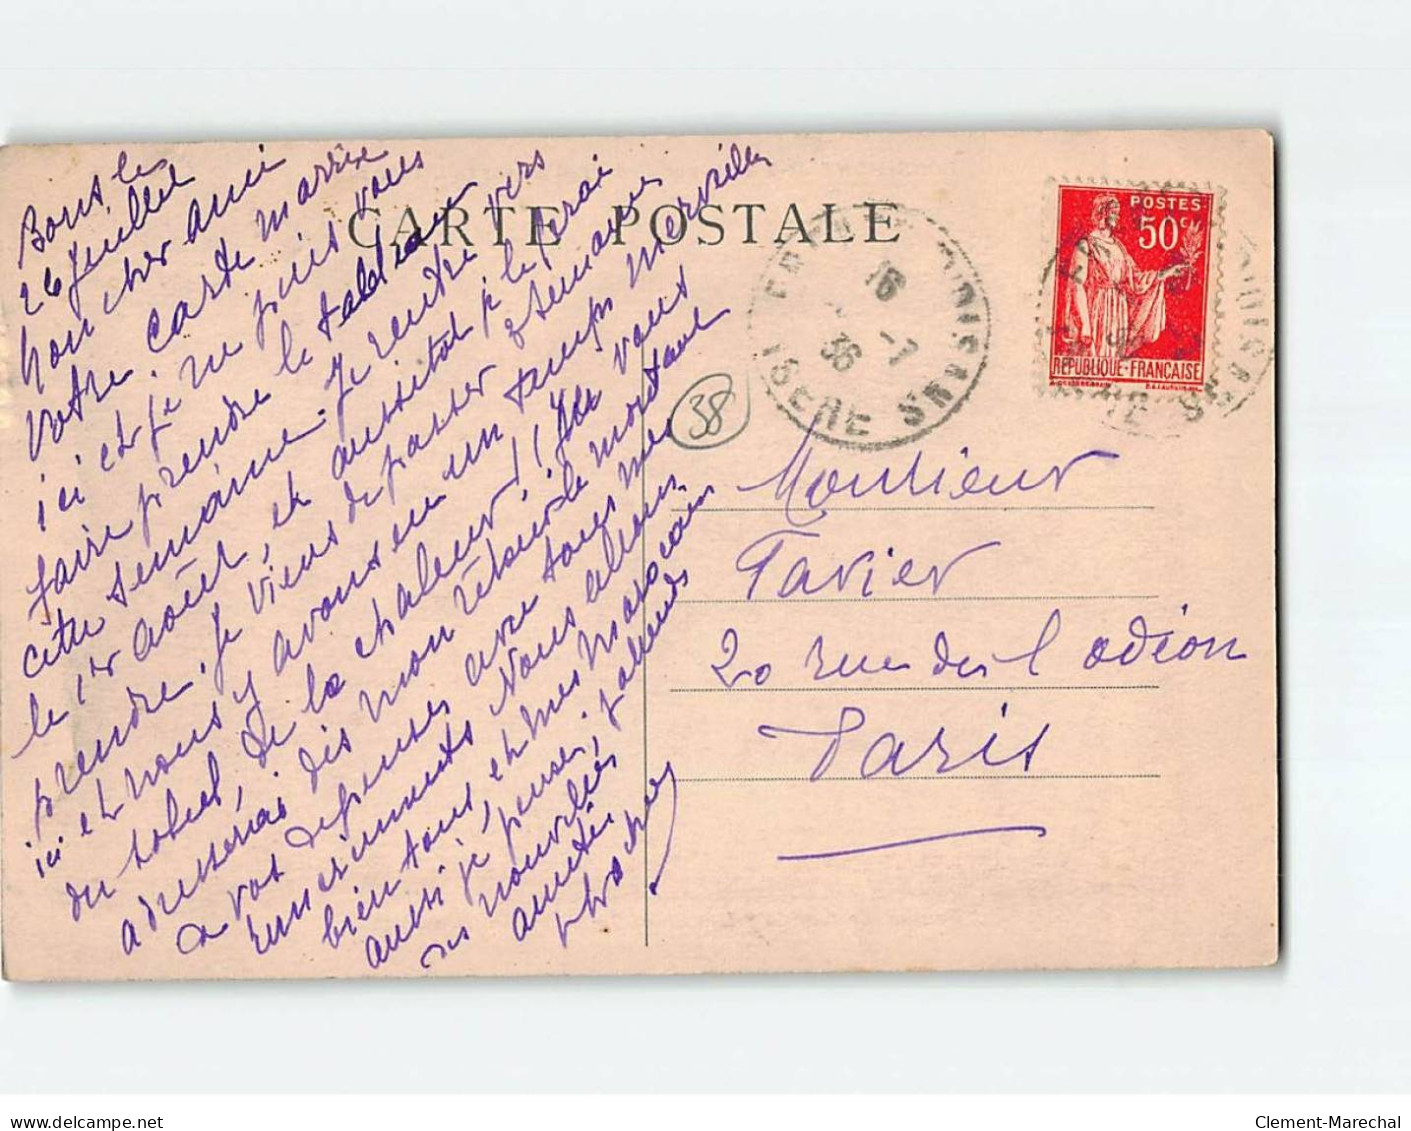 CARTE POSTALE
26 Juillet
Mon cher ami
Votre carte m'arrive
ici et je ne puis vous
faire prendre le tableau
cette semaine. Je rentre vers
le 1er août, et aussitôt je le ferai
prendre. Je viens de passer 3 semaines
ici et nous y avons eu un temps merveilleux
du soleil, de la chaleur! Je vous
adresserai dès mon retour le montant
de vos dépenses avec tous mes
remerciements. Nous allons
bien tous, et
aussi je pense. J'attends
vos nouvelles
amitiés
POSTES
50c
RÉPUBLIQUE-FRANÇAISE
16 -7
36
ISERE
38
Monsieur
Tavier
20 rue de l'odéon
Paris
Clement-Marechal